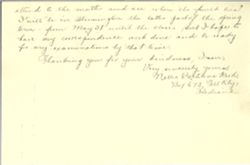 attend to the matter and see when he could hire?
I will be in Bloomington the latter part of the spring
term - from May 21 until the close, and I hope to
have my correspondence work done and be ready
for my examinations by that time.
Thanking you for your kindness, I am,
Very sincerely yours,
Indiana